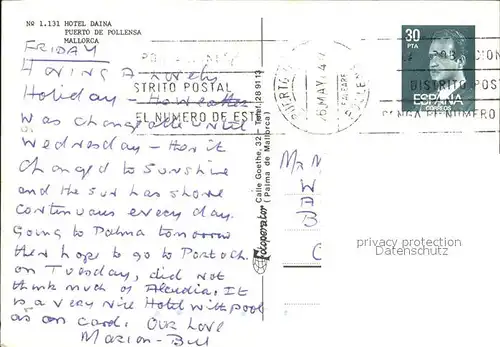 Nº 1.131 HOTEL DAINA
PUERTO DE POLLENSA
MALLORCA
FRIDAY
HAVING A Lovely
Holiday - However
was changeable until
Wednesday - Here it
changed to Sunshine
and the sun has shone
continuous every day.
Going to Palma tomorrow
then hope to go to Portoch.
on Tuesday, did not
think much of Alcudia, It
is a very nice Hotel with pool
as on card. OUR LOVE
Marion - Bill
STRITO POSTAL
EL NUMERO DE ESTE
Fotoperator
Calle Goethe, 32 - Telef. 289113
( Palma de Mallorca )
PUERTO
MAY
POLLENSA
BALEARES
30
PTA
ESPAÑA
CORREOS
POBLACION
DISTRITO POST
PONGA EL NUMERO
MR
W
A
B
C
privacy protection
Datenschutz